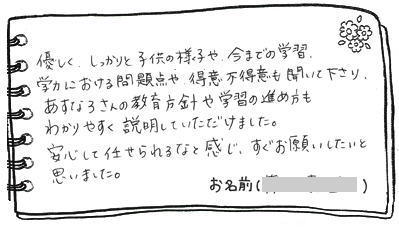 優しく、しっかりと子供の様子や、今までの学習、
学力における問題点や、得意不得意も聞いて下さり、
あすなろさんの教育方針や学習の進め方も
わかりやすく説明していただけました。
安心して任せられるなと感じ、すぐお願いしたいと
思いました。
お名前( )